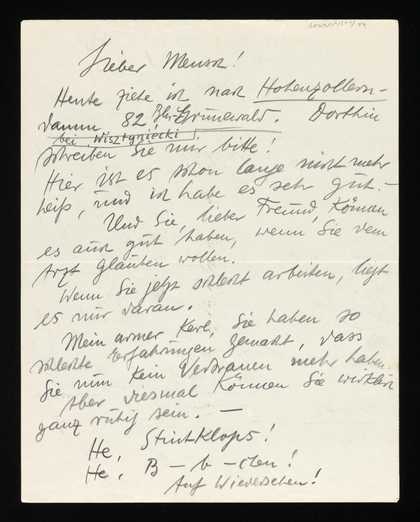 Lieber Mensch!
Heute ziehe ich nach Hohenzollern-
damm 82 Bln Grunewald. Dorthin
bei Wisztyniecki!
schreiben Sie mir bitte!
Hier ist es schon lange nicht mehr
heiß, und ich habe es sehr gut.–
Und Sie, lieber Freund, können
es auch gut haben, wenn Sie dem
Arzt glauben wollen.
Wenn Sie jetzt schlecht arbeiten, liegt
es nur daran.
Mein armer Kerl, Sie haben so
schlechte Erfahrungen gemacht, dass
Sie nun kein Vertrauen mehr haben.
Aber diesmal können Sie wirklich
ganz ruhig sein. –
He, Stinkklops!
He, B – b – chen!
Auf Wiedersehen!